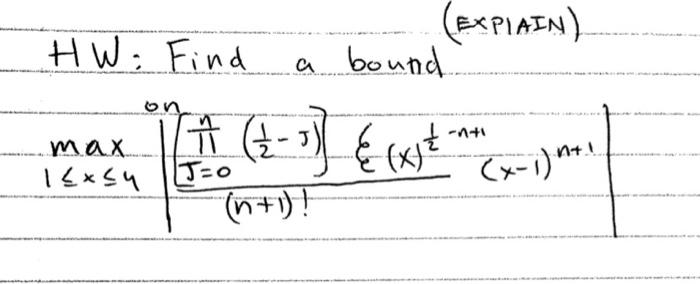 (EXPLAIN)
HW: Find a bound
on
max 1≤x≤4 | [∏_{J=0}^{n} (1/2 - J)] ξ(x)^{1/2 -n+1} / (n+1)! (x-1)^{n+1} |